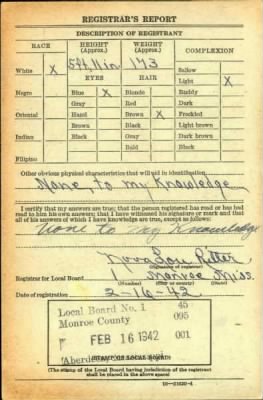 REGISTRAR'S REPORT
DESCRIPTION OF REGISTRANT
RACE
HEIGHT (Approx.)
WEIGHT (Approx.)
COMPLEXION
White X
5 ft 11 in
173
Sallow
EYES
HAIR
Light X
Negro
Blue X
Blonde
Ruddy
Gray
Red
Dark
Oriental
Hazel
Brown X
Freckled
Brown
Black
Light brown
Indian
Black
Gray
Dark brown
Bald
Black
Filipino
Other obvious physical characteristics that will aid in identification
None, to my Knowledge
I certify that my answers are true; that the person registered has read or has had
read to him his own answers; that I have witnessed his signature or mark and that
all of his answers of which I have knowledge are true, except as follows:
None to my Knowledge
Nova Lou Ritter
(Signature of registrar)
Registrar for Local Board 1 Monroe Miss.
(Number) (City or county) (State)
Date of registration 2-16-42
Local Board No. 1 45
Monroe County 095
FEB 16 1942 001
Aberdeen,
(STAMP OF LOCAL BOARD)
(The stamp of the Local Board having jurisdiction of the registrant
shall be placed in the above space)